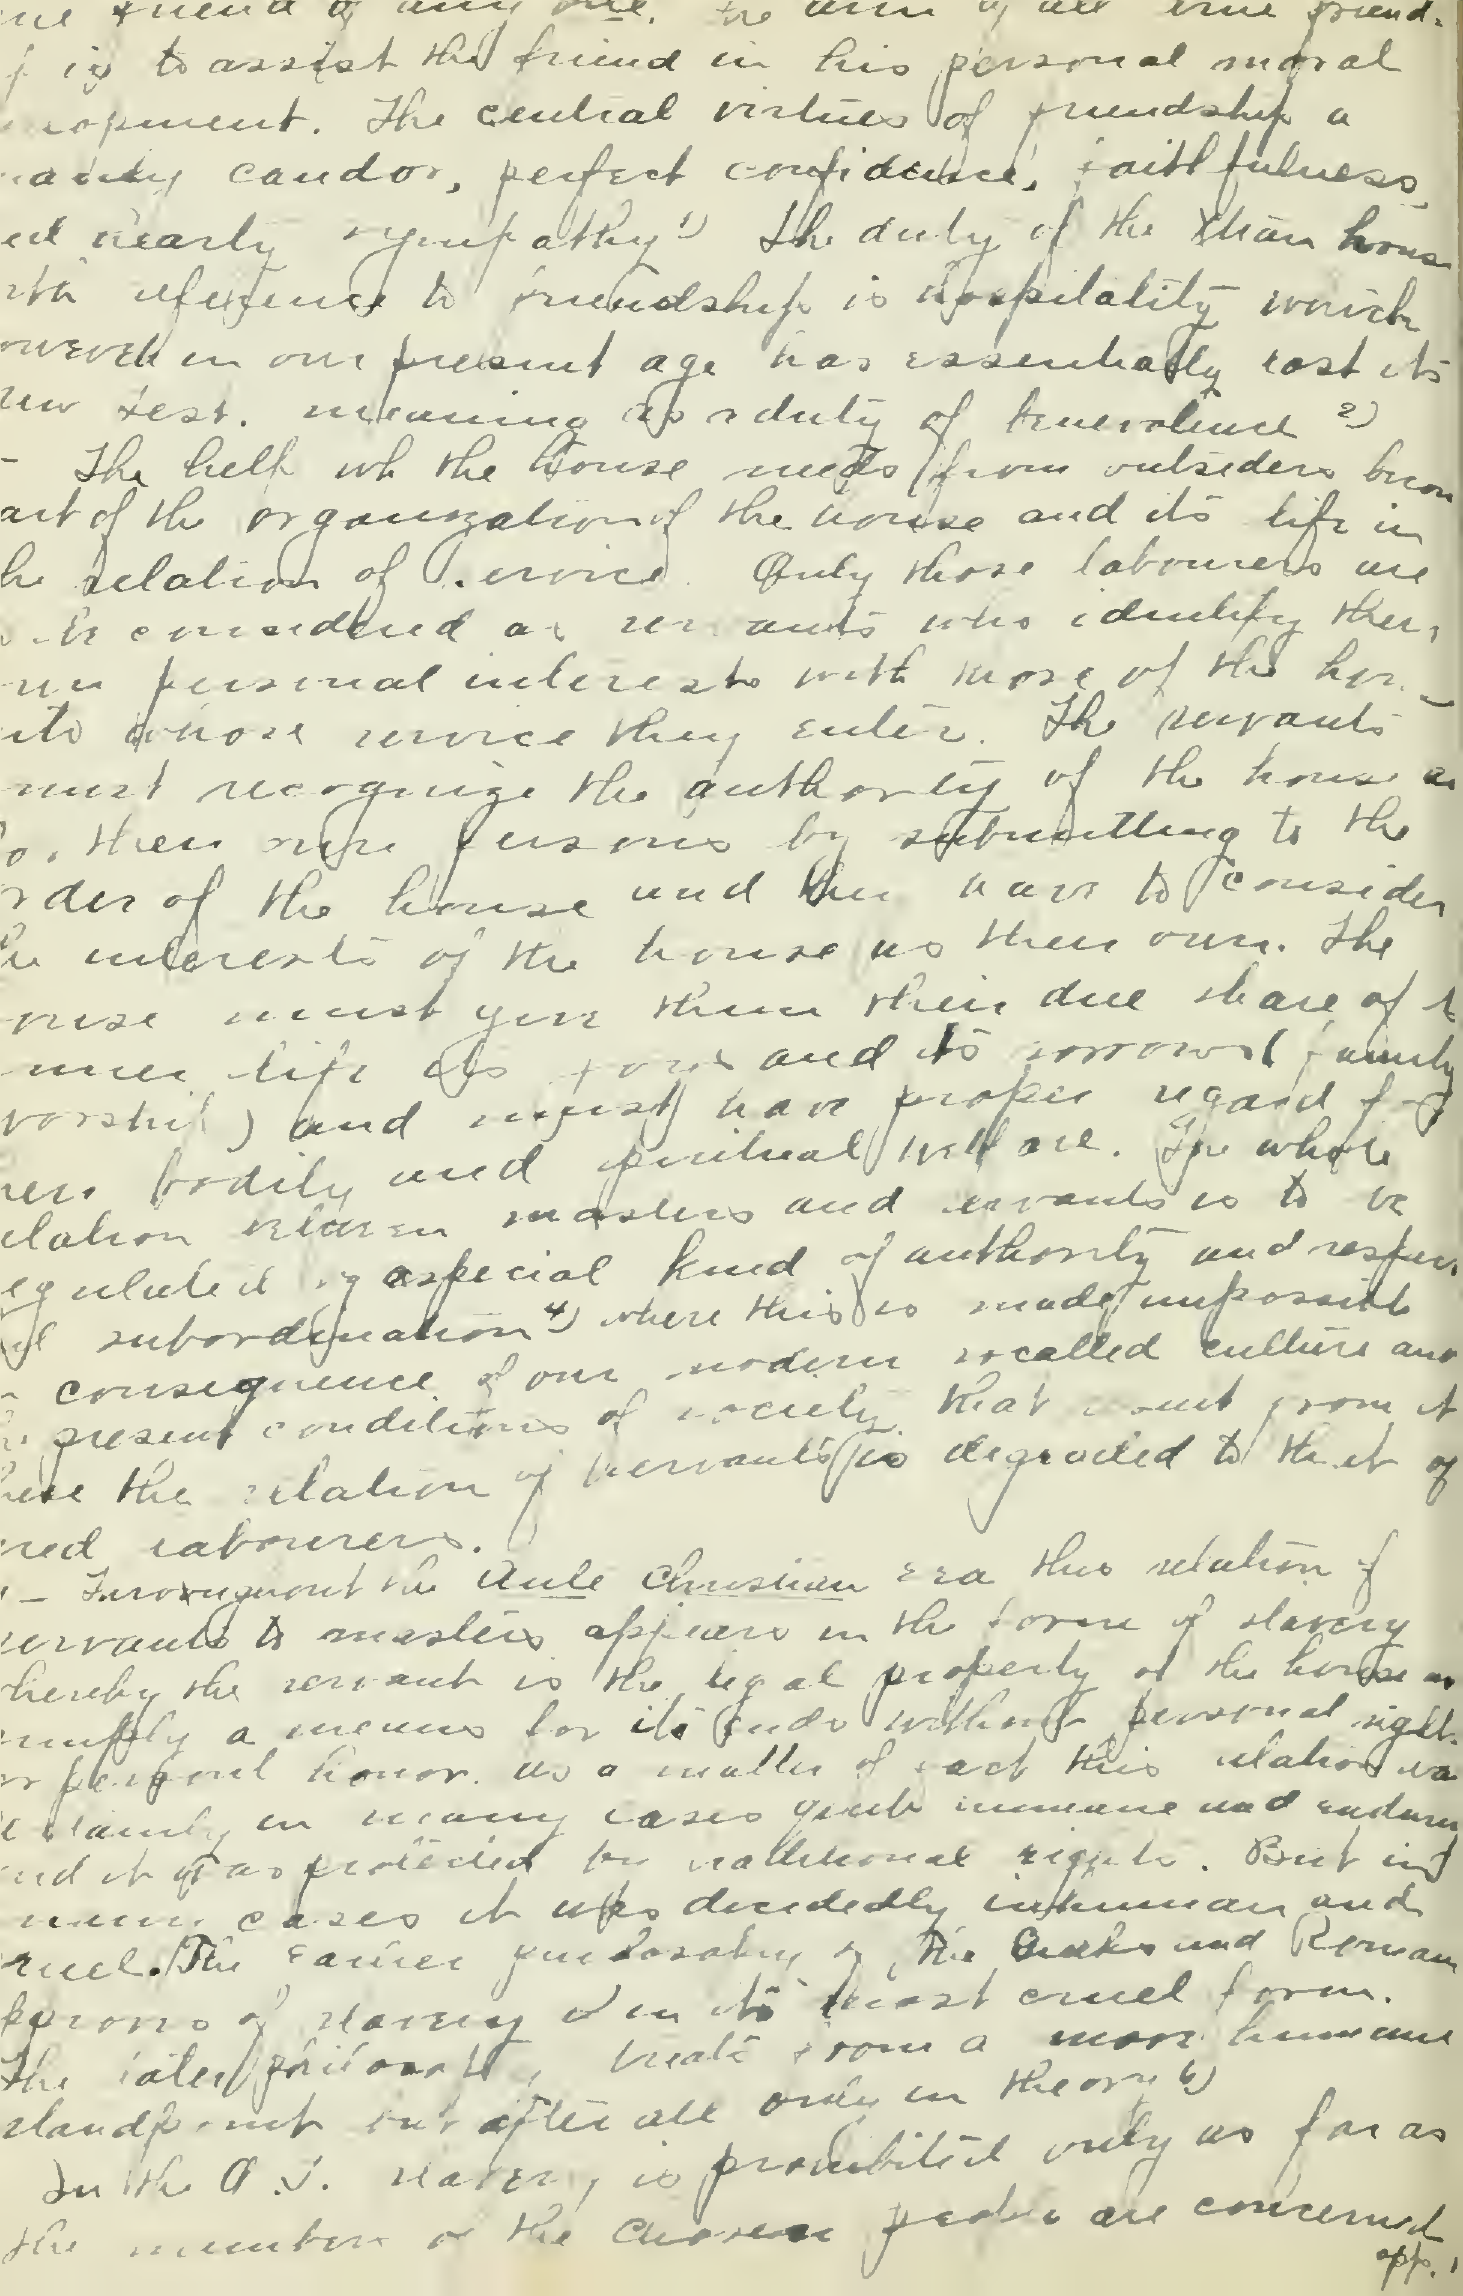 friend of any one. The aim of all true friend-
is to assist the friend in his personal moral
opment. The central virtues of friendship a
candor, perfect confidence, faithfulness,
hearty sympathy 1) The duty of the Xtian hous
reference to friendship is hospitality which
owever in our present age has essentially lost its
new Test. meaning as a duty of benevolence 2)
- The help wh the house needs from outsiders becom
art of the organization of the house and its life in
he relation of service. Only those labourers are
be considered as servants who identify their
personal interests with those of the hou
nto whose service they enter. The servants
must recognize the authority of the house as
persons by submitting to the
rder of the house and they have to consider
he interests of the house as their own. The
ouse must give them their due share of
inner life its joys and its sorrows (family
worship) and must have proper regard for
their bodily and spiritual welfare. The whole
elation between masters and servants is to be
egulated by a special kind of authority and respec
subordination 4) where this is made impossible
consequence of our modern socalled culture and
present conditions of society that result from it
here the relation of servants is degraded to that of
red labourers.
- Throughout the Ante Christian era this relation of
servants to masters appears in the form of slavery
hereby the servant is the legal property of the house as
simply a means for its ends without personal right.
or personal honor. As a matter of fact this relation wa
certainly in many cases quite humane and endura
nd it was protected by traditional rights. But in
many cases it was decidedly inhuman and
cruel. The earlier philosophy of the Greeks and Roman
pproves of slavery in its most cruel form.
The later philosophy treats from a more humane
standpoint but after all only in theory 6)
In the O.T. slavery is prohibited only as far as
the members of the chosen people are concerned
opp.